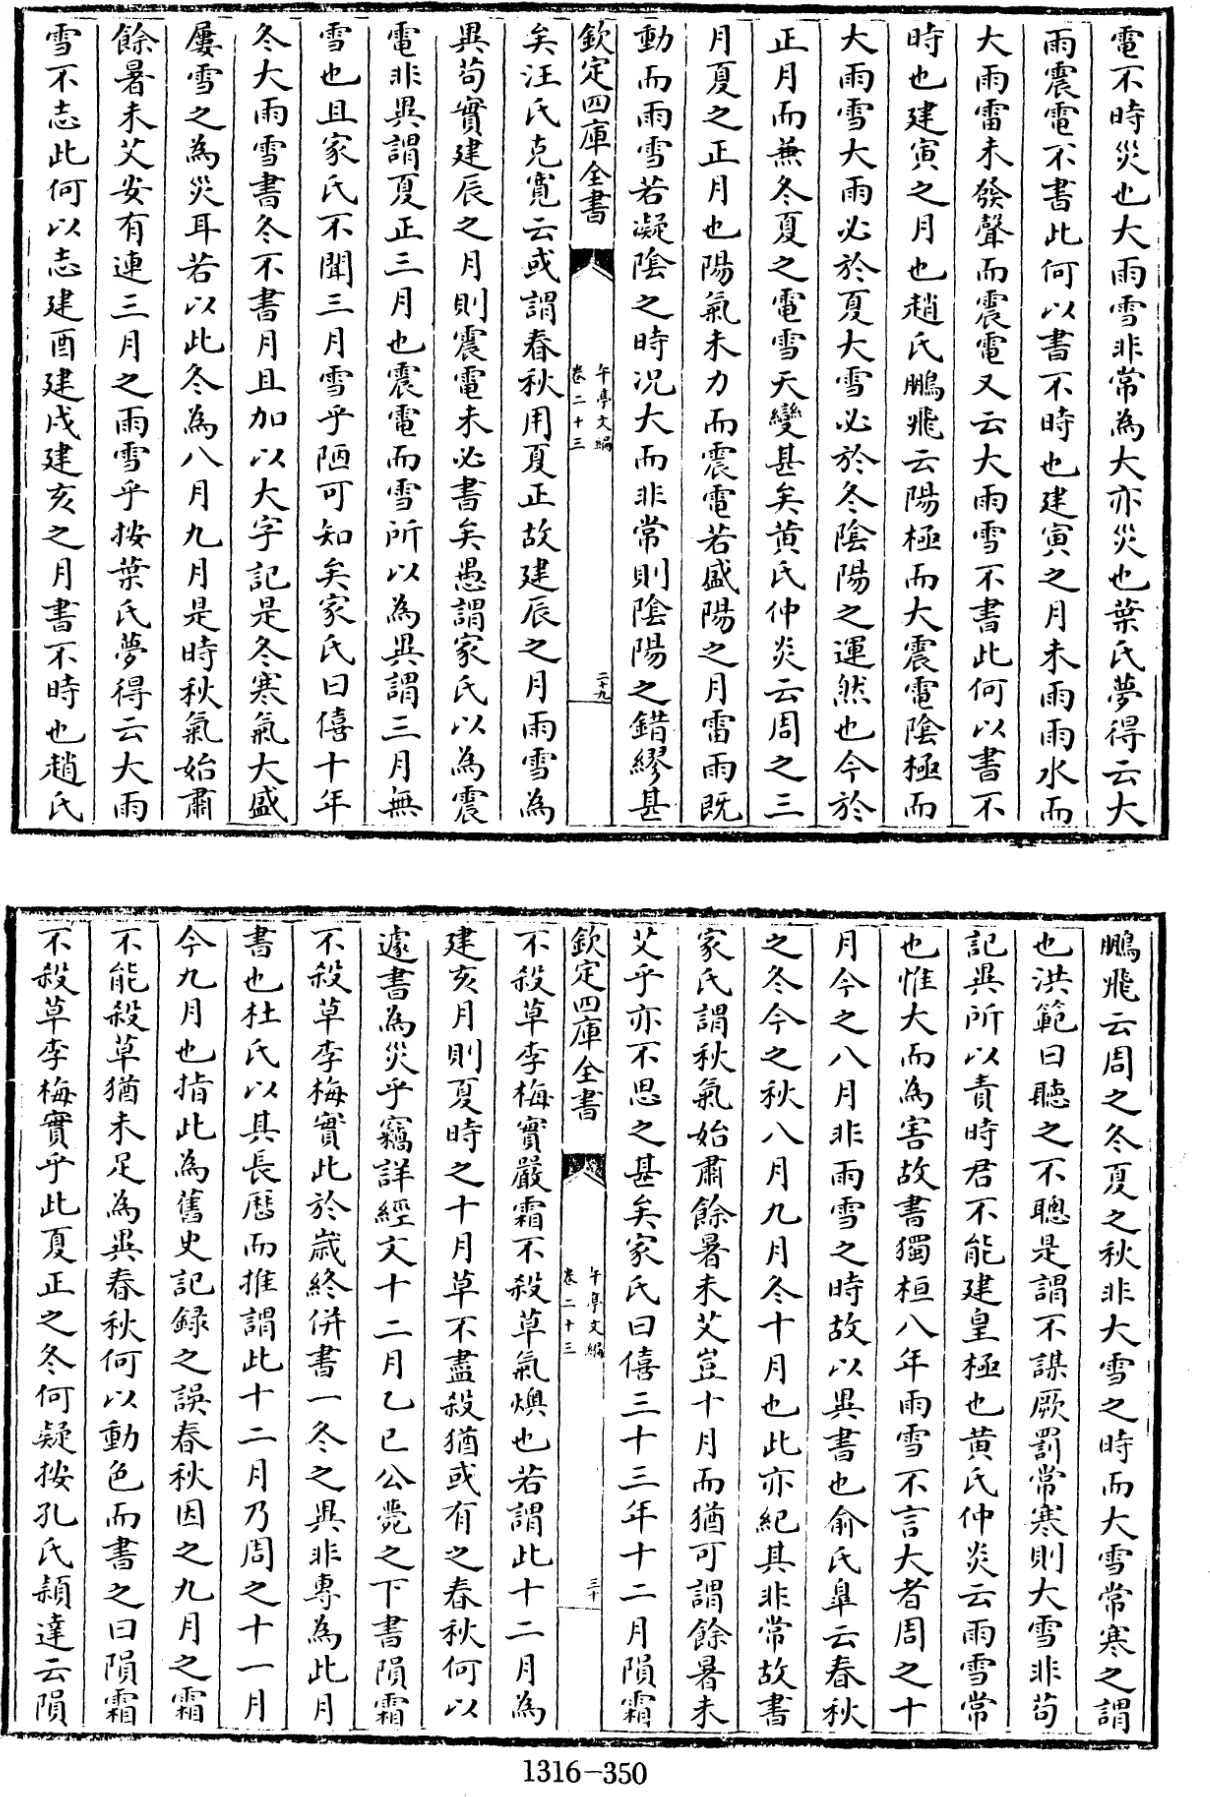 電不時災也大雨雪非常為大亦災也葉氏夢得云大
雨震電不書此何以書不時也建寅之月未雨雨水而
大雨雷未發聲而震電又云大雨雪不書此何以書不
時也建寅之月也趙氏鵬飛云陽極而大震電陰極而
大雨雪大雨必於夏大雪必於冬陰陽之運然也今於
正月而兼冬夏之電雪天變甚矣黄氏仲炎云周之三
月夏之正月也陽氣未力而震電若盛陽之月雷雨既
動而雨雪若凝陰之時况大而非常則陰陽之錯繆甚
欽定四庫全書
午亭文編
卷二十三
二十九
矣汪氏克寛云或謂春秋用夏正故建辰之月雨雪為
異茍實建辰之月則震電未必書矣愚謂家氏以為震
電非異謂夏正三月也震電而雪所以為異謂三月無
雪也且家氏不聞三月雪乎陋可知矣家氏曰僖十年
冬大雨雪書冬不書月且加以大字記是冬寒氣大盛
屢雪之為災耳若以此冬為八月九月是時秋氣始肅
餘暑未艾安有連三月之雨雪乎按葉氏夢得云大雨
雪不志此何以志建酉建戌建亥之月書不時也趙氏
鵬飛云周之冬夏之秋非大雪之時而大雪常寒之謂
也洪範曰聽之不聰是謂不謀厥罰常寒則大雪非茍
記異所以責時君不能建皇極也黄氏仲炎云雨雪常
也惟大而為害故書獨桓八年雨雪不言大者周之十
月今之八月非雨雪之時故以異書也俞氏臯云春秋
之冬今之秋八月九月冬十月也此亦紀其非常故書
家氏謂秋氣始肅餘暑未艾豈十月而猶可謂餘暑未
艾乎亦不思之甚矣家氏曰僖三十三年十二月隕霜
欽定四庫全書
午亭文編
卷二十三
三十
不殺草李梅實嚴霜不殺草氣燠也若謂此十二月為
建亥月則夏時之十月草不盡殺猶或有之春秋何以
遽書為災乎竊詳經文十二月乙巳公薨之下書隕霜
不殺草李梅實此於歳終併書一冬之異非專為此月
書也杜氏以其長厯而推謂此十二月乃周之十一月
今九月也指此為舊史記録之誤春秋因之九月之霜
不能殺草猶未足為異春秋何以動色而書之曰隕霜
不殺草李梅實乎此夏正之冬何疑按孔氏頴達云隕
1316-350